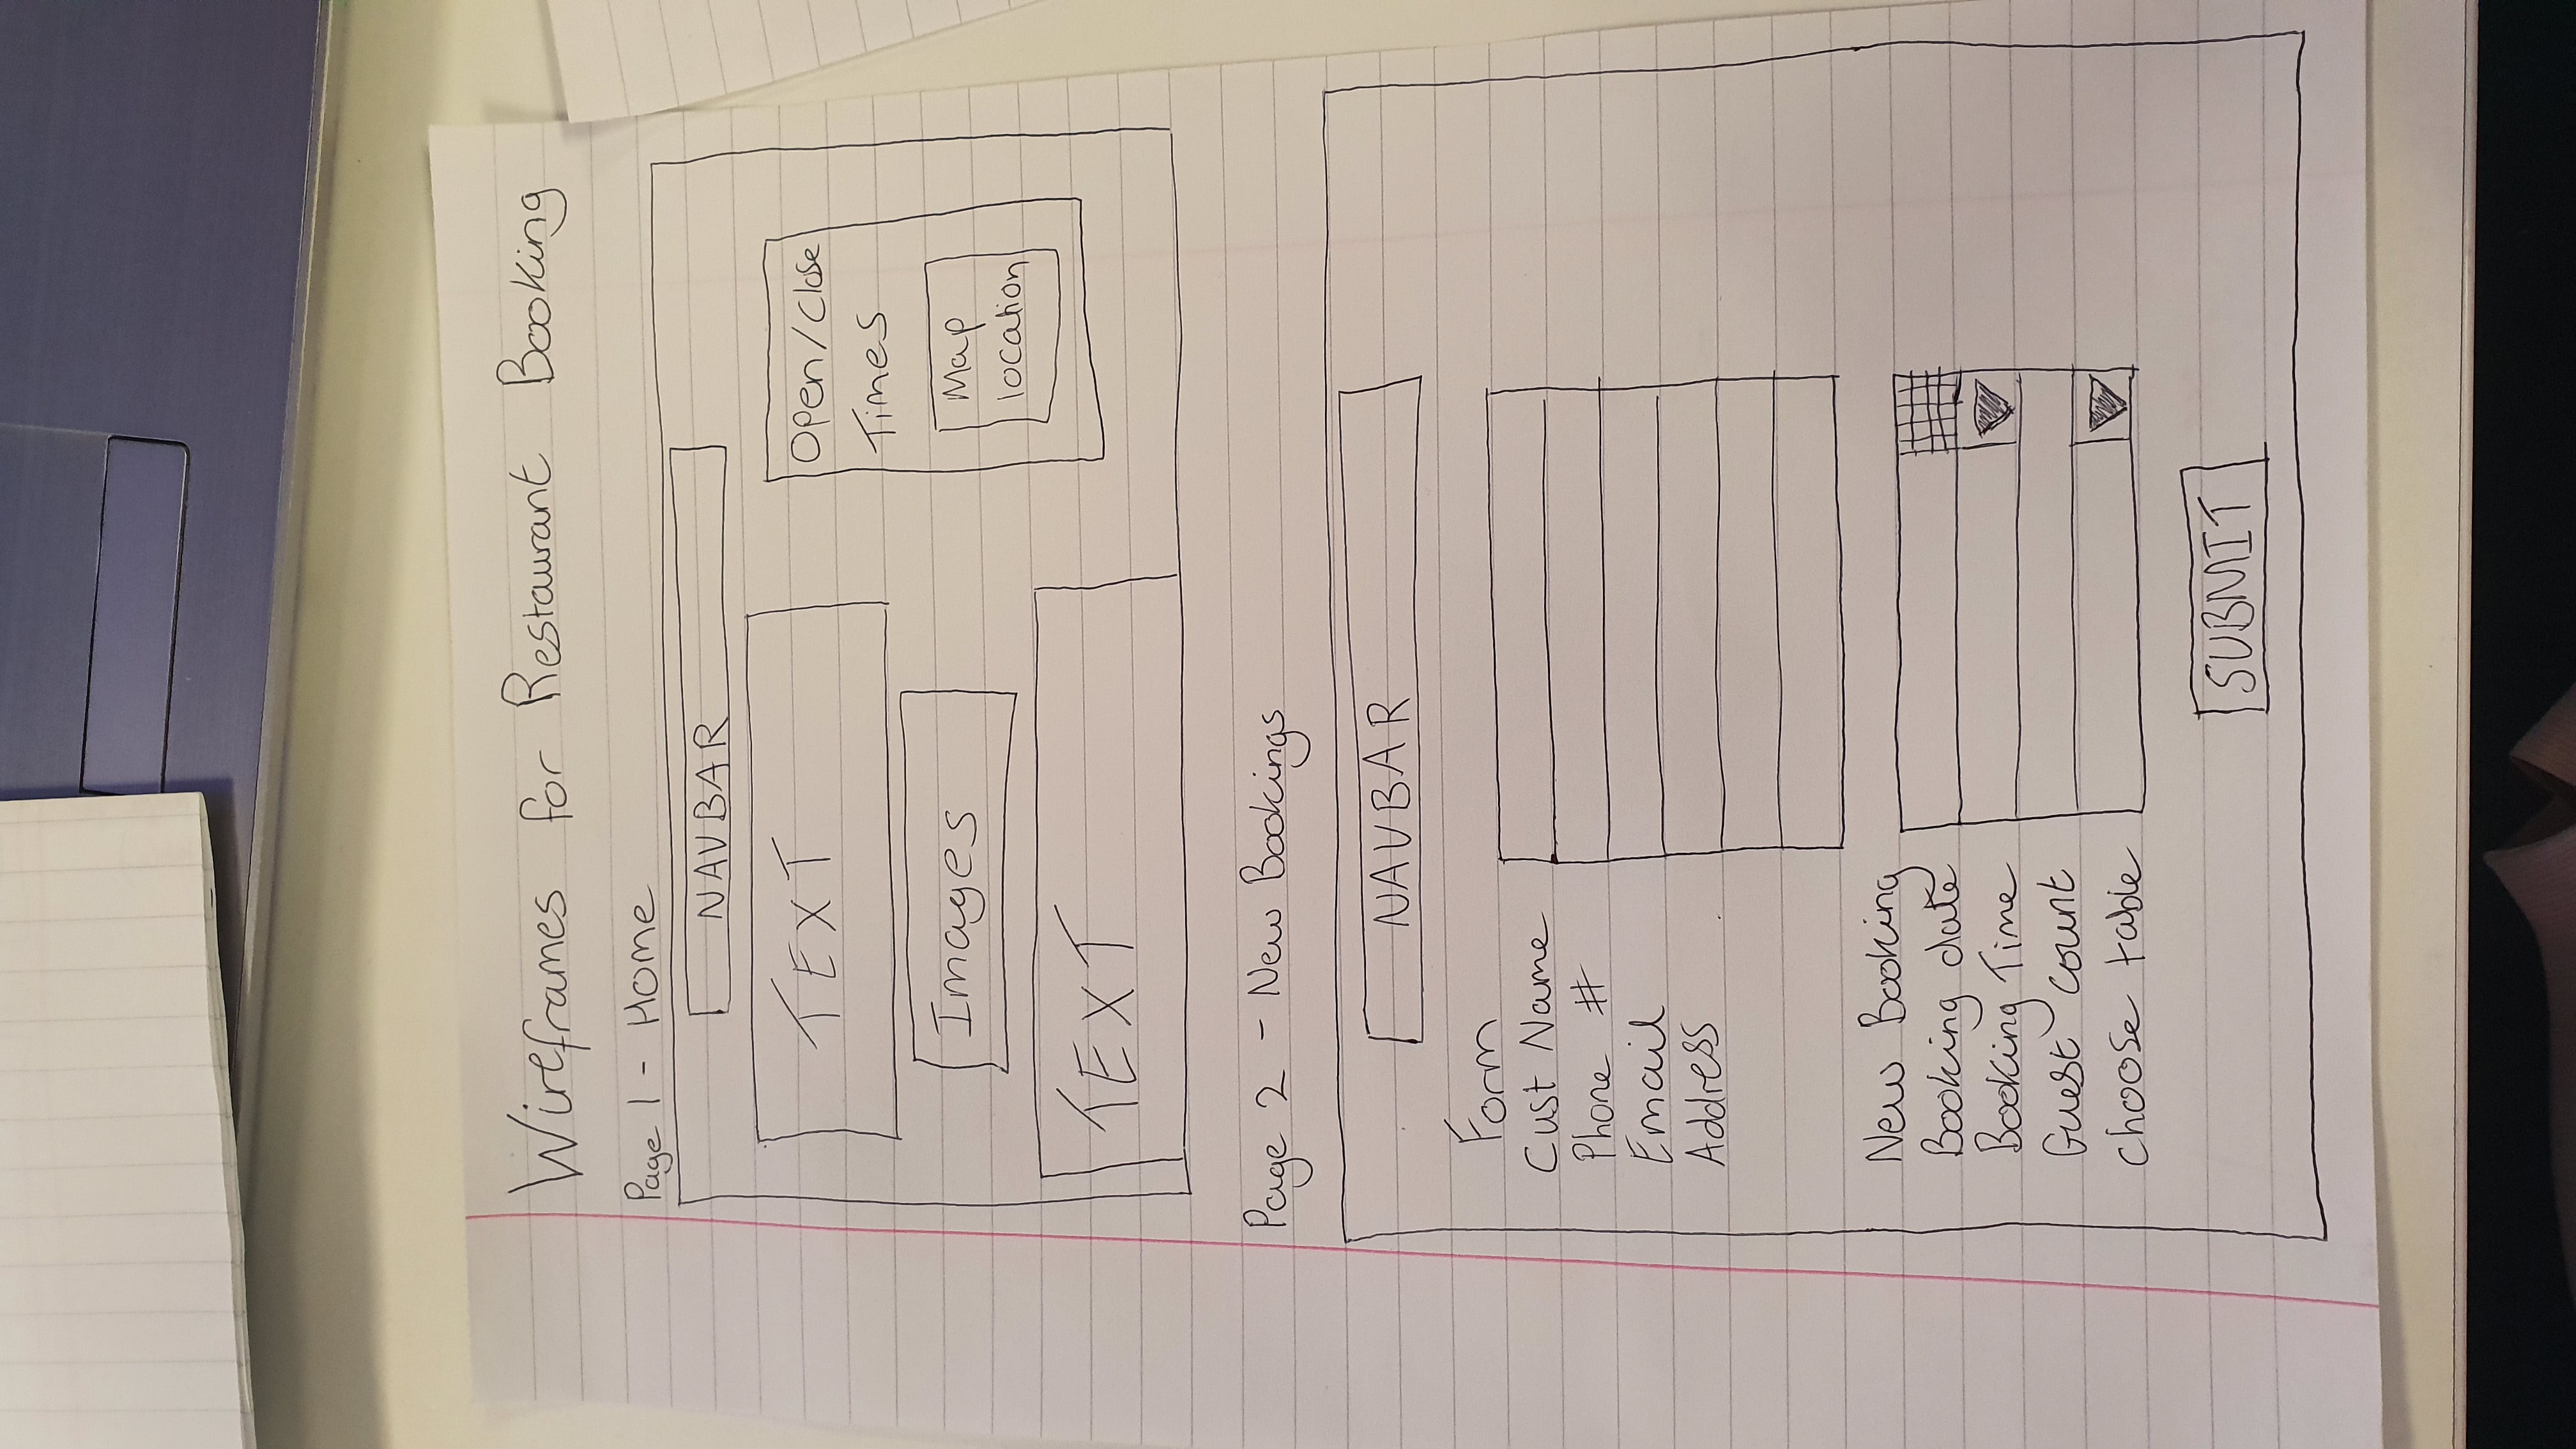 Wireframes for Restaurant Booking
Page 1 - Home
NAVBAR
TEXT
Images
TEXT
Open/Close
Times
Map
location
Page 2 - New Bookings
NAVBAR
Form
Cust Name
Phone #
Email
Address
New Booking
Booking date
Booking Time
Guest count
choose table
SUBMIT